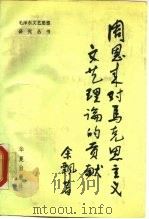 毛泽东文艺思想
研究丛书
周恩来对马克思主义
文艺理论的贡献
余飘 著
华夏出版社